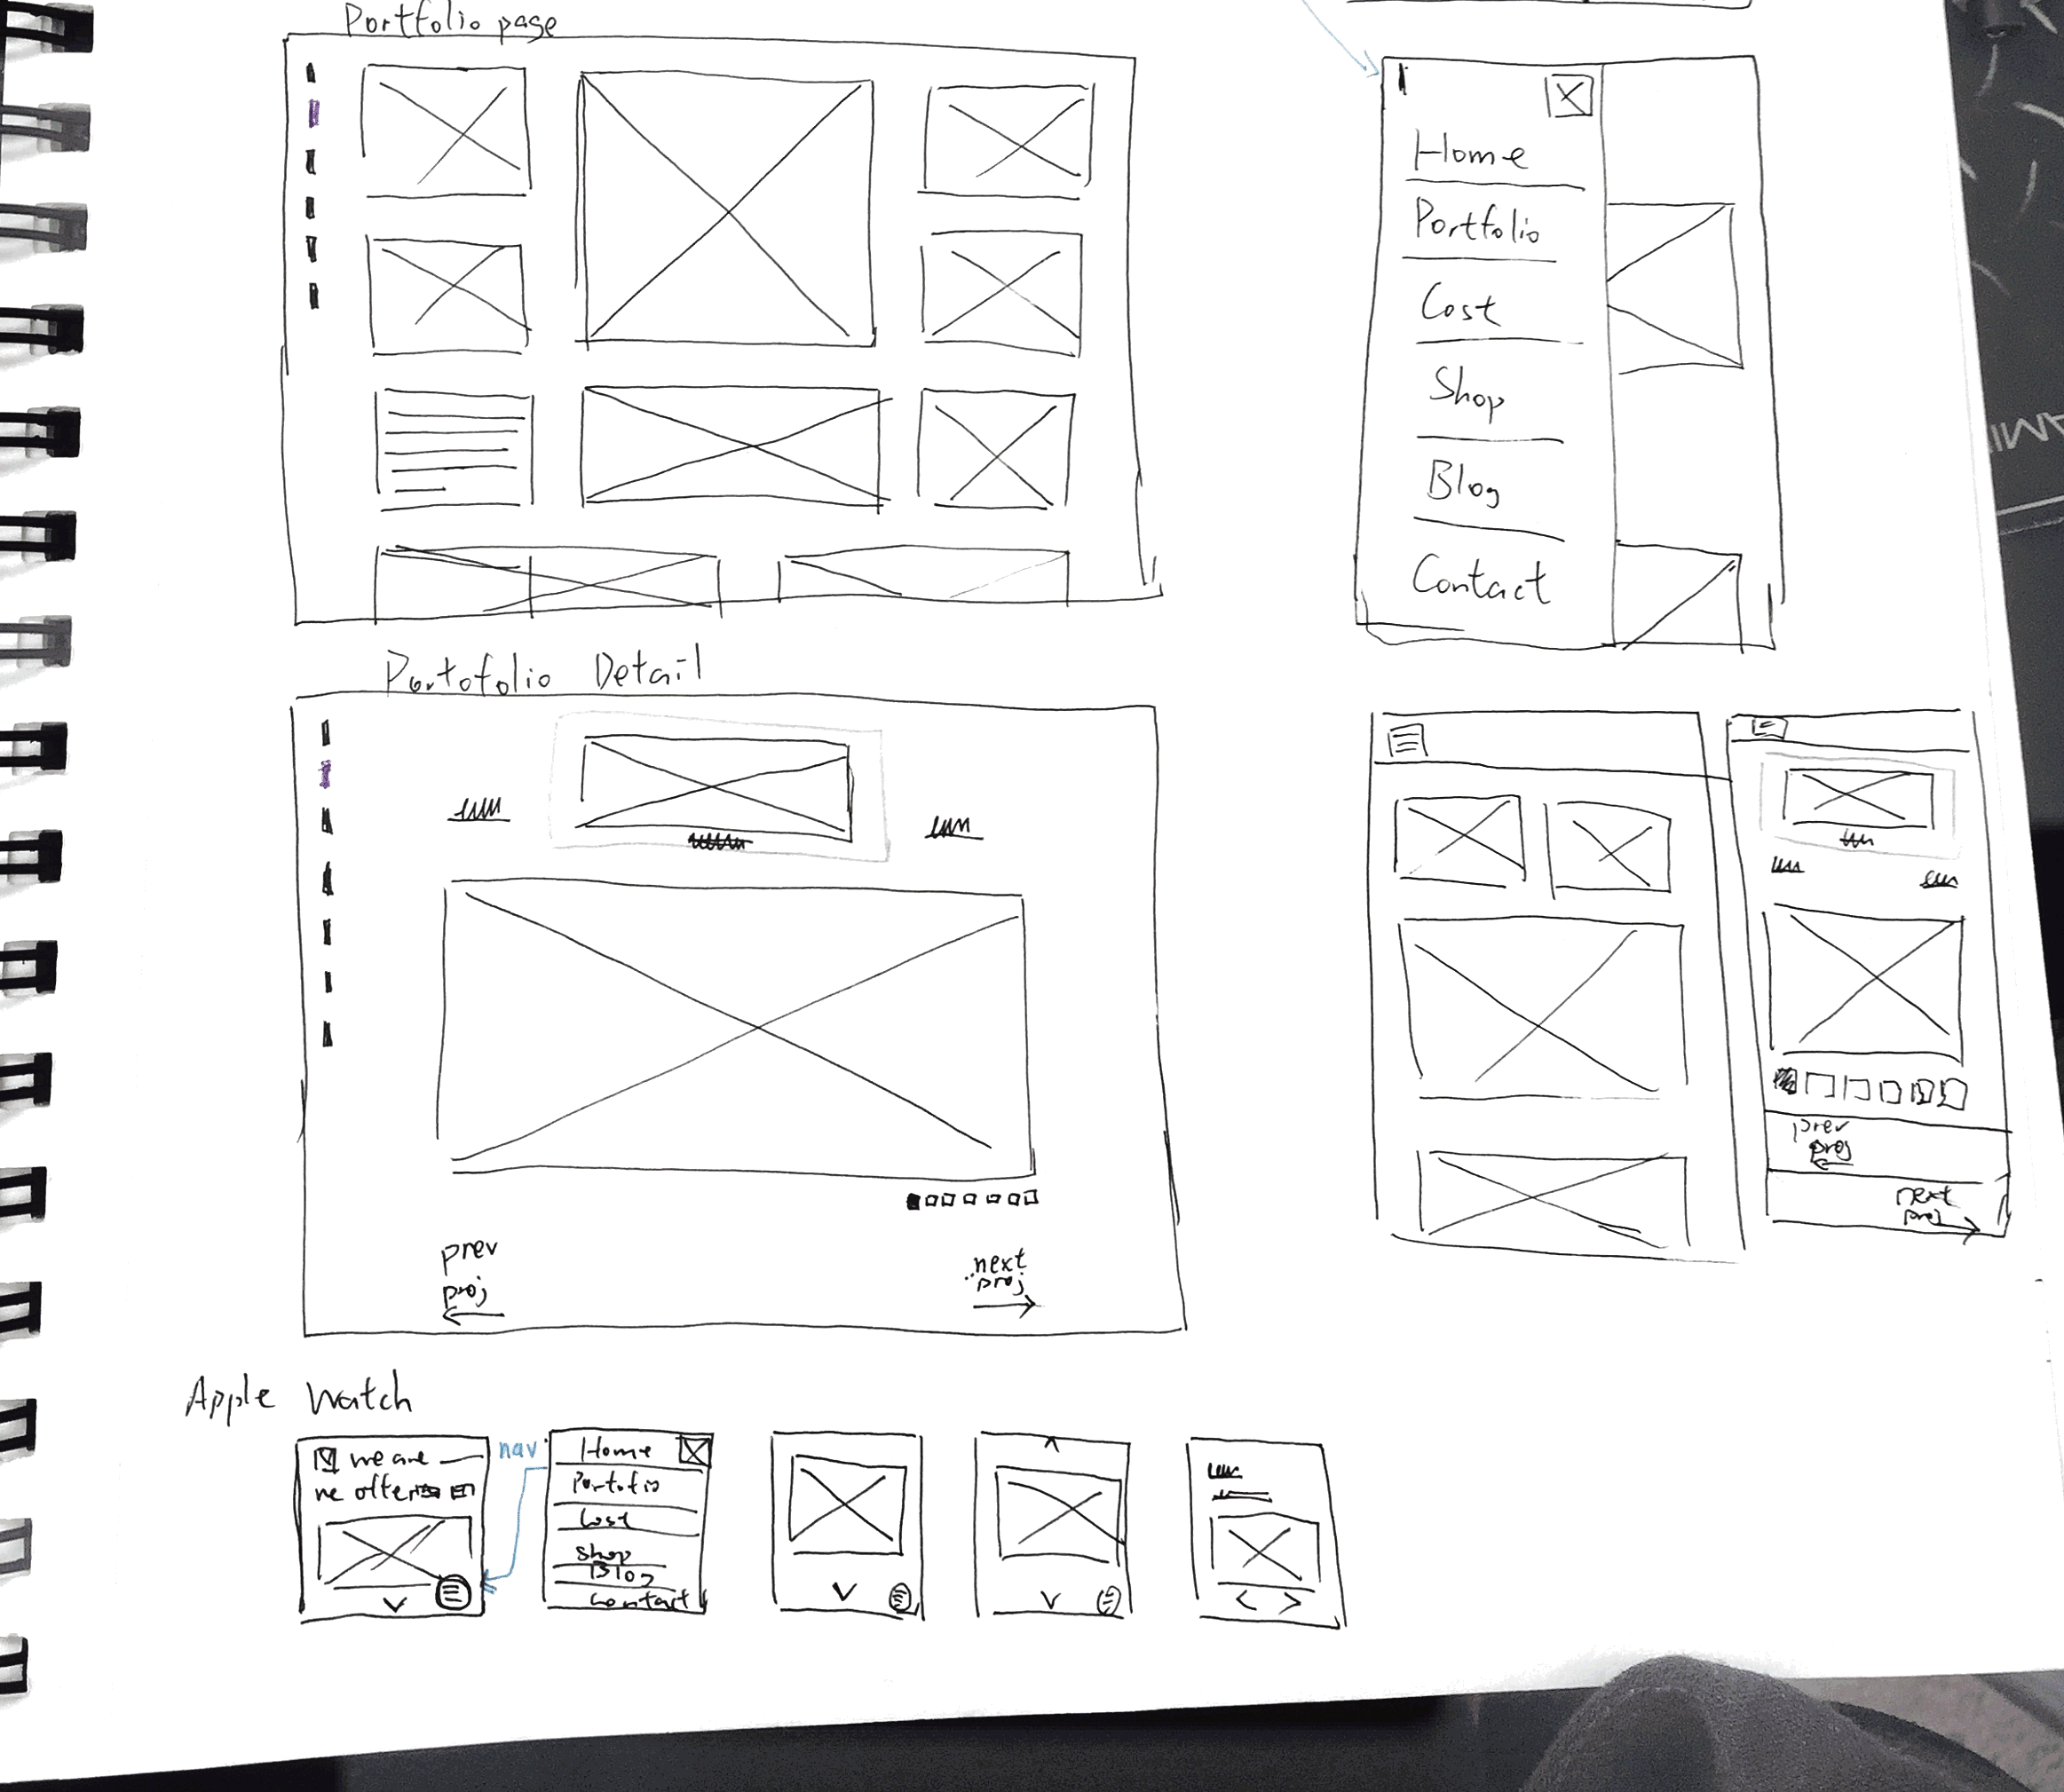 Portfolio page
Home
Portfolio
Cost
Shop
Blog
Contact
Portofolio Detail
prev
proj
next
proj
prev
proj
next
proj
Apple Watch
we are
we offer
nav
Home
Portofio
Cost
shop
Blog
Contact